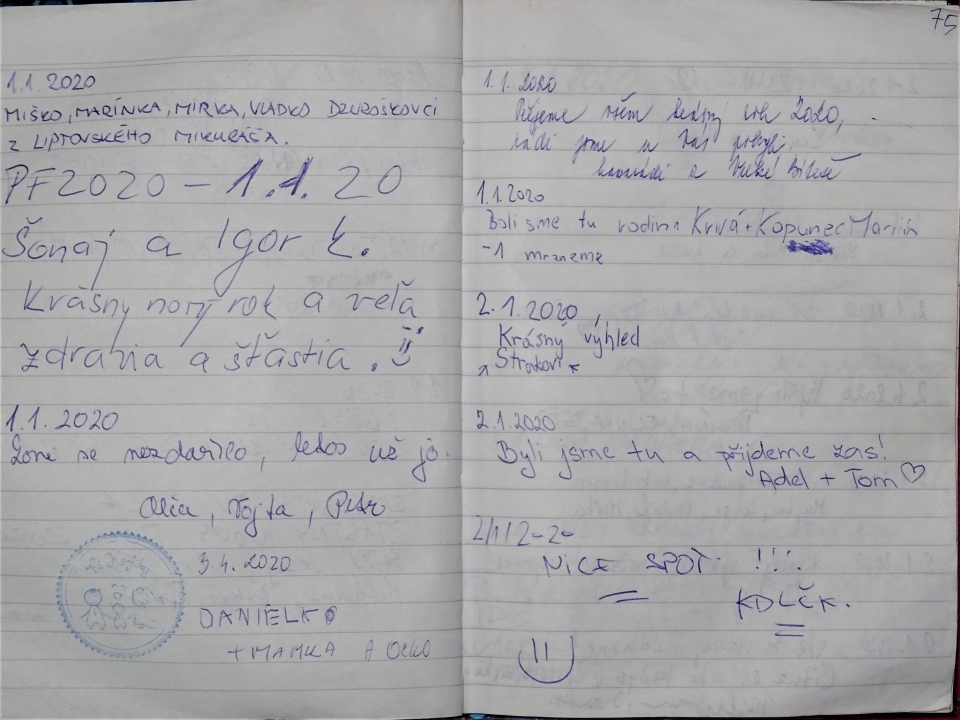 1.1. 2020
MIŠKO, MARÍNKA, MIRKA, VLADKO DZUROŠKOVCI
Z LIPTOVSKÉHO MIKULÁŠA.
PF2020 – 1.1.20
Šonaj a Igor K.
Krásny nový rok a veľa
zdravia a šťastia.
1.1.2020
Loni se nezdařilo, letos už jo.
Olča, Vojta, Petr
3.4.2020
DANIELKO
+ MAMKA A OCKO
75
1.1. 2020
Přejeme všem krásný rok 2020,
rádi jsme u Vás pobyli.
kamarádi z Velké Bíteše
1.1.2020
Boli sme tu rodina Krivá + Kopunec Marián
-1 mrzneme
2.1.2020,
Krásný výhled
Strakovi
2.1.2020
Byli jsme tu a přijdeme zas!
Adel + Tom ♡
2/1 12-20
NICE SPOT. !!!
KDLČK.